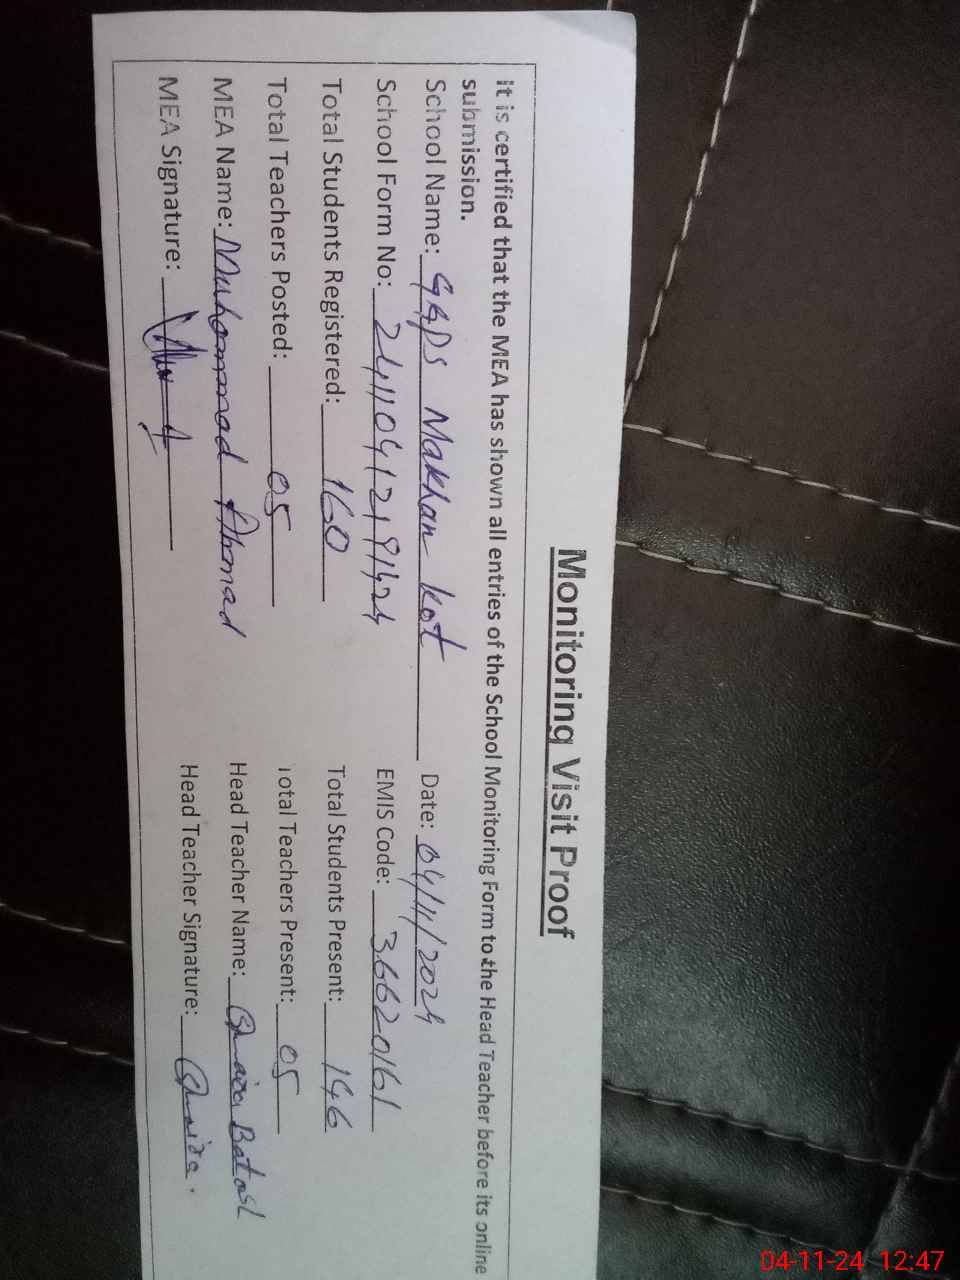 Monitoring Visit Proof
It is certified that the MEA has shown all entries of the School Monitoring Form to the Head Teacher before its online
submission.
School Name: GGPS Makhan kot Date: 04/11/2024
School Form No: EMIS Code: 36620161
Total Students Registered: 160 Total Students Present: 146
Total Teachers Posted: 05 Total Teachers Present: 05
MEA Name: Muhammad Ahmad Head Teacher Name:
MEA Signature: Head Teacher Signature:
04-11-24 12:47